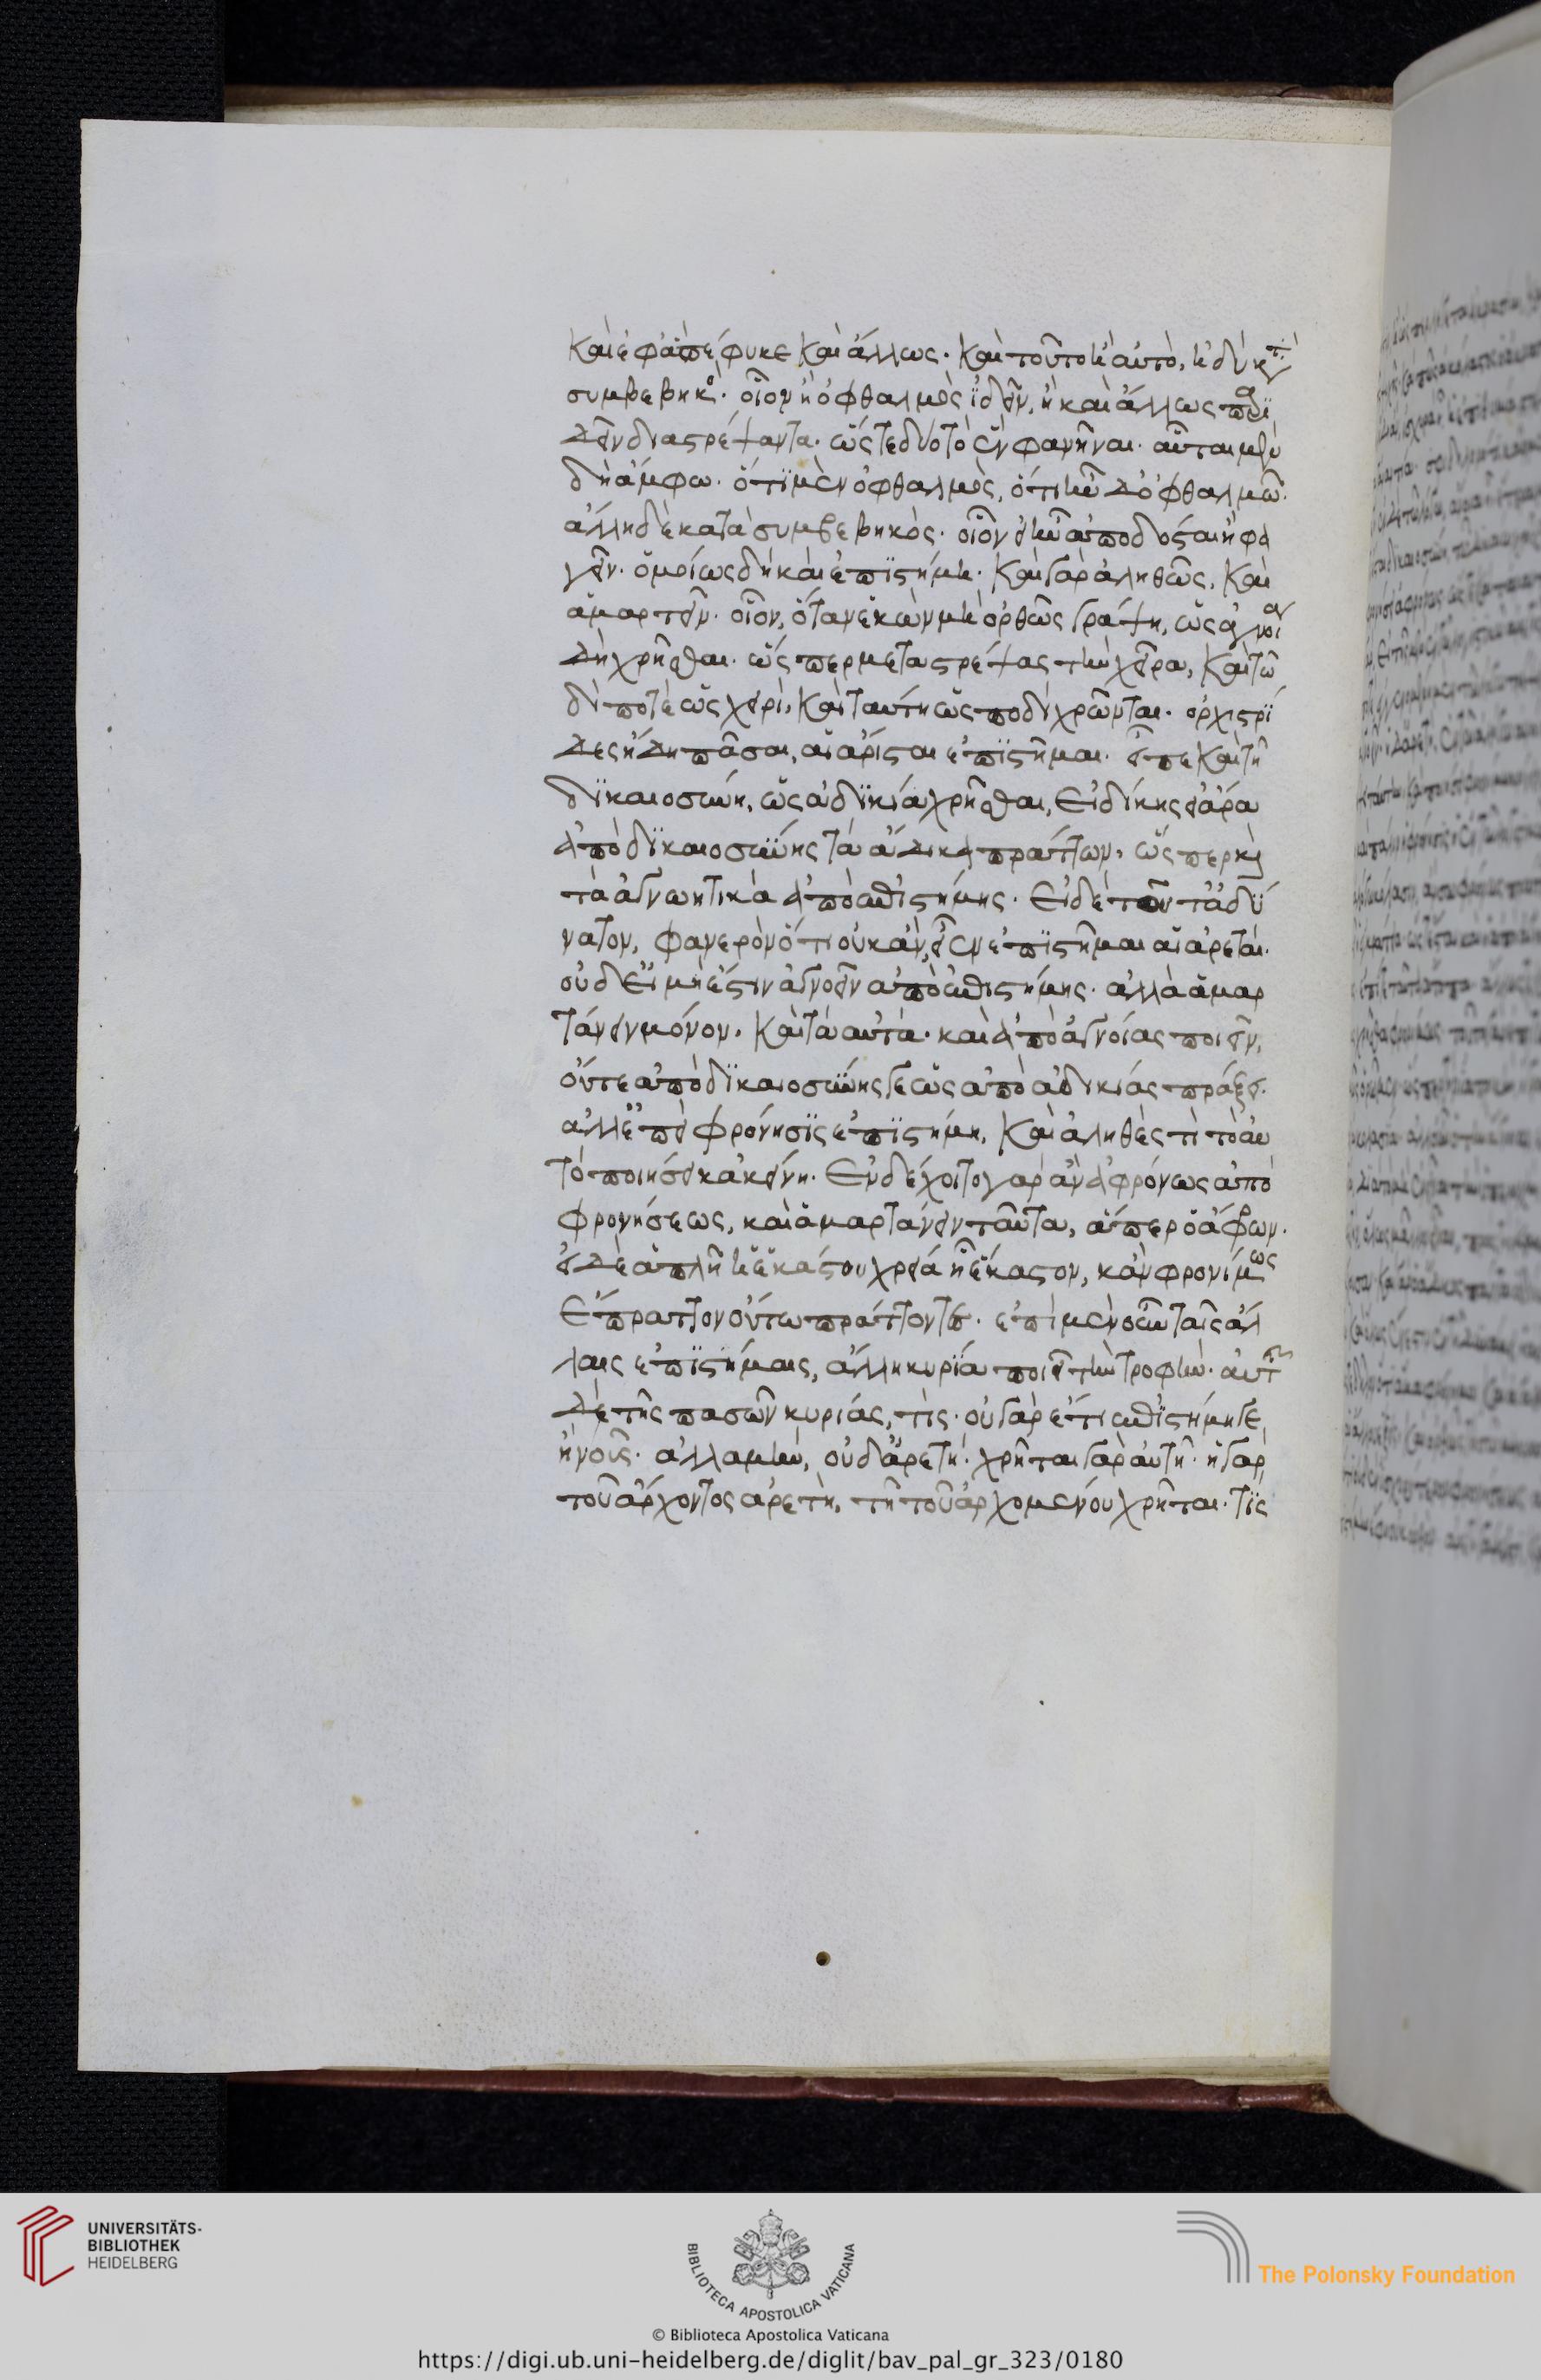 Καὶ ἐφ' ἃ πέφυκε καὶ ἄλλως. καὶ τοῦτο ἢ αὐτὸ, ἡδὺ κατὰ
συμβεβηκός. οἷον ἡ ὀφθαλμὸς ἰδεῖν, ἢ καὶ ἄλλως παρϊ
δεῖν διαστρέψαντα. ὥστε δύο τὸ ἓν φανῆναι. αὗται μὲν
δὴ ἄμφω. ὅτι μὲν ὀφθαλμὸς, ὅτι ἦν δ' ὀφθαλμῶ.
ἄλλη δὲ κατὰ συμβεβηκός. οἷον εἰ ἦν ἀποδόσθαι ἢ φα
γεῖν. ὁμοίως δὴ καὶ ἐπιστήμη. καὶ γὰρ ἀληθῶς, καὶ
ἁμαρτεῖν. οἷον, ὅταν ἑκὼν μὴ ὀρθῶς γράψη, ὡς ἀγνοία
δὴ χρῆσθαι. ὥσπερ μεταστρέψας τὴν χεῖρα, καὶ τῶ
δί ποτε ὡς χειρὶ, καὶ ταύτη ὡς ποδὶ χρῶνται. ὀρχιστρί
δες ἤδη πᾶσαι, αἱ ἄρισται ἐπιστῆμαι. εἶπε καὶ τῆ
δικαιοσύνη, ὡς ἀδικία χρῆσθαι, Εἰ δίκης εἰ ἄρα
ἀπὸ δικαιοσύνης τὰ ἄδικα πράττων, ὥσπερ καὶ
τὰ ἀγνωητικὰ ἀπὸ ἐπιστήμης. Εἰ δὲ τοῦτ' ἀδύ
νατον, φανερὸν ὅτι οὐκ ἂν εἶεν ἐπιστῆμαι αἱ ἀρεταί.
οὐδ' εἰ μὴ ἔστιν ἀγνοεῖν ἀπὸ ἐπιστήμης. ἀλλὰ ἁμαρ
τάνειν μόνον. καὶ τὰ αὐτὰ. καὶ ἀπὸ ἀγνοίας ποιεῖν,
οὔτε ἀπὸ δικαιοσύνης γε ὡς ἀπὸ ἀδικίας πράξει.
ἀλλ' ἐπεὶ φρόνησις ἐπιστήμη, καὶ ἀληθές τι τὸ αὐ
τὸ ποιήσει κἀκείνη. Ἐνδέχοιτο γὰρ ἂν ἀφρόνως ἀπὸ
φρονήσεως, καὶ ἁμαρτάνειν ταῦτα, ἅπερ ὁ ἄφρων.
εἰ δὲ ἁπλῆ ἡ ἑκάστου χρεία ἢ ἕκαστον, κἂν φρονίμως
ἔπραττον οὕτω πράττοντες. ἐπὶ μὲν οὖν ταῖς ἄλ
λαις ἐπιστήμαις, ἄλλη κυρία ποιεῖ τὴν τροφὴν. αὐτῆς
δὲ τῆς πασῶν κυρίας, τίς. οὐ γὰρ ἔτι ἐπιστήμη γε
ἢ νοῦς. ἀλλαμὴν, οὐδ' ἀρετὴ. χρῆται γὰρ αὐτῆ. ἡ γὰρ
τοῦ ἄρχοντος ἀρετὴ, τῆ τοῦ ἀρχομένου χρῆται. τίς
UNIVERSITÄTS-
BIBLIOTHEK
HEIDELBERG
BIBLIOTECA APOSTOLICA VATICANA
The Polonsky Foundation
© Biblioteca Apostolica Vaticana
https://digi.ub.uni-heidelberg.de/diglit/bav_pal_gr_323/0180